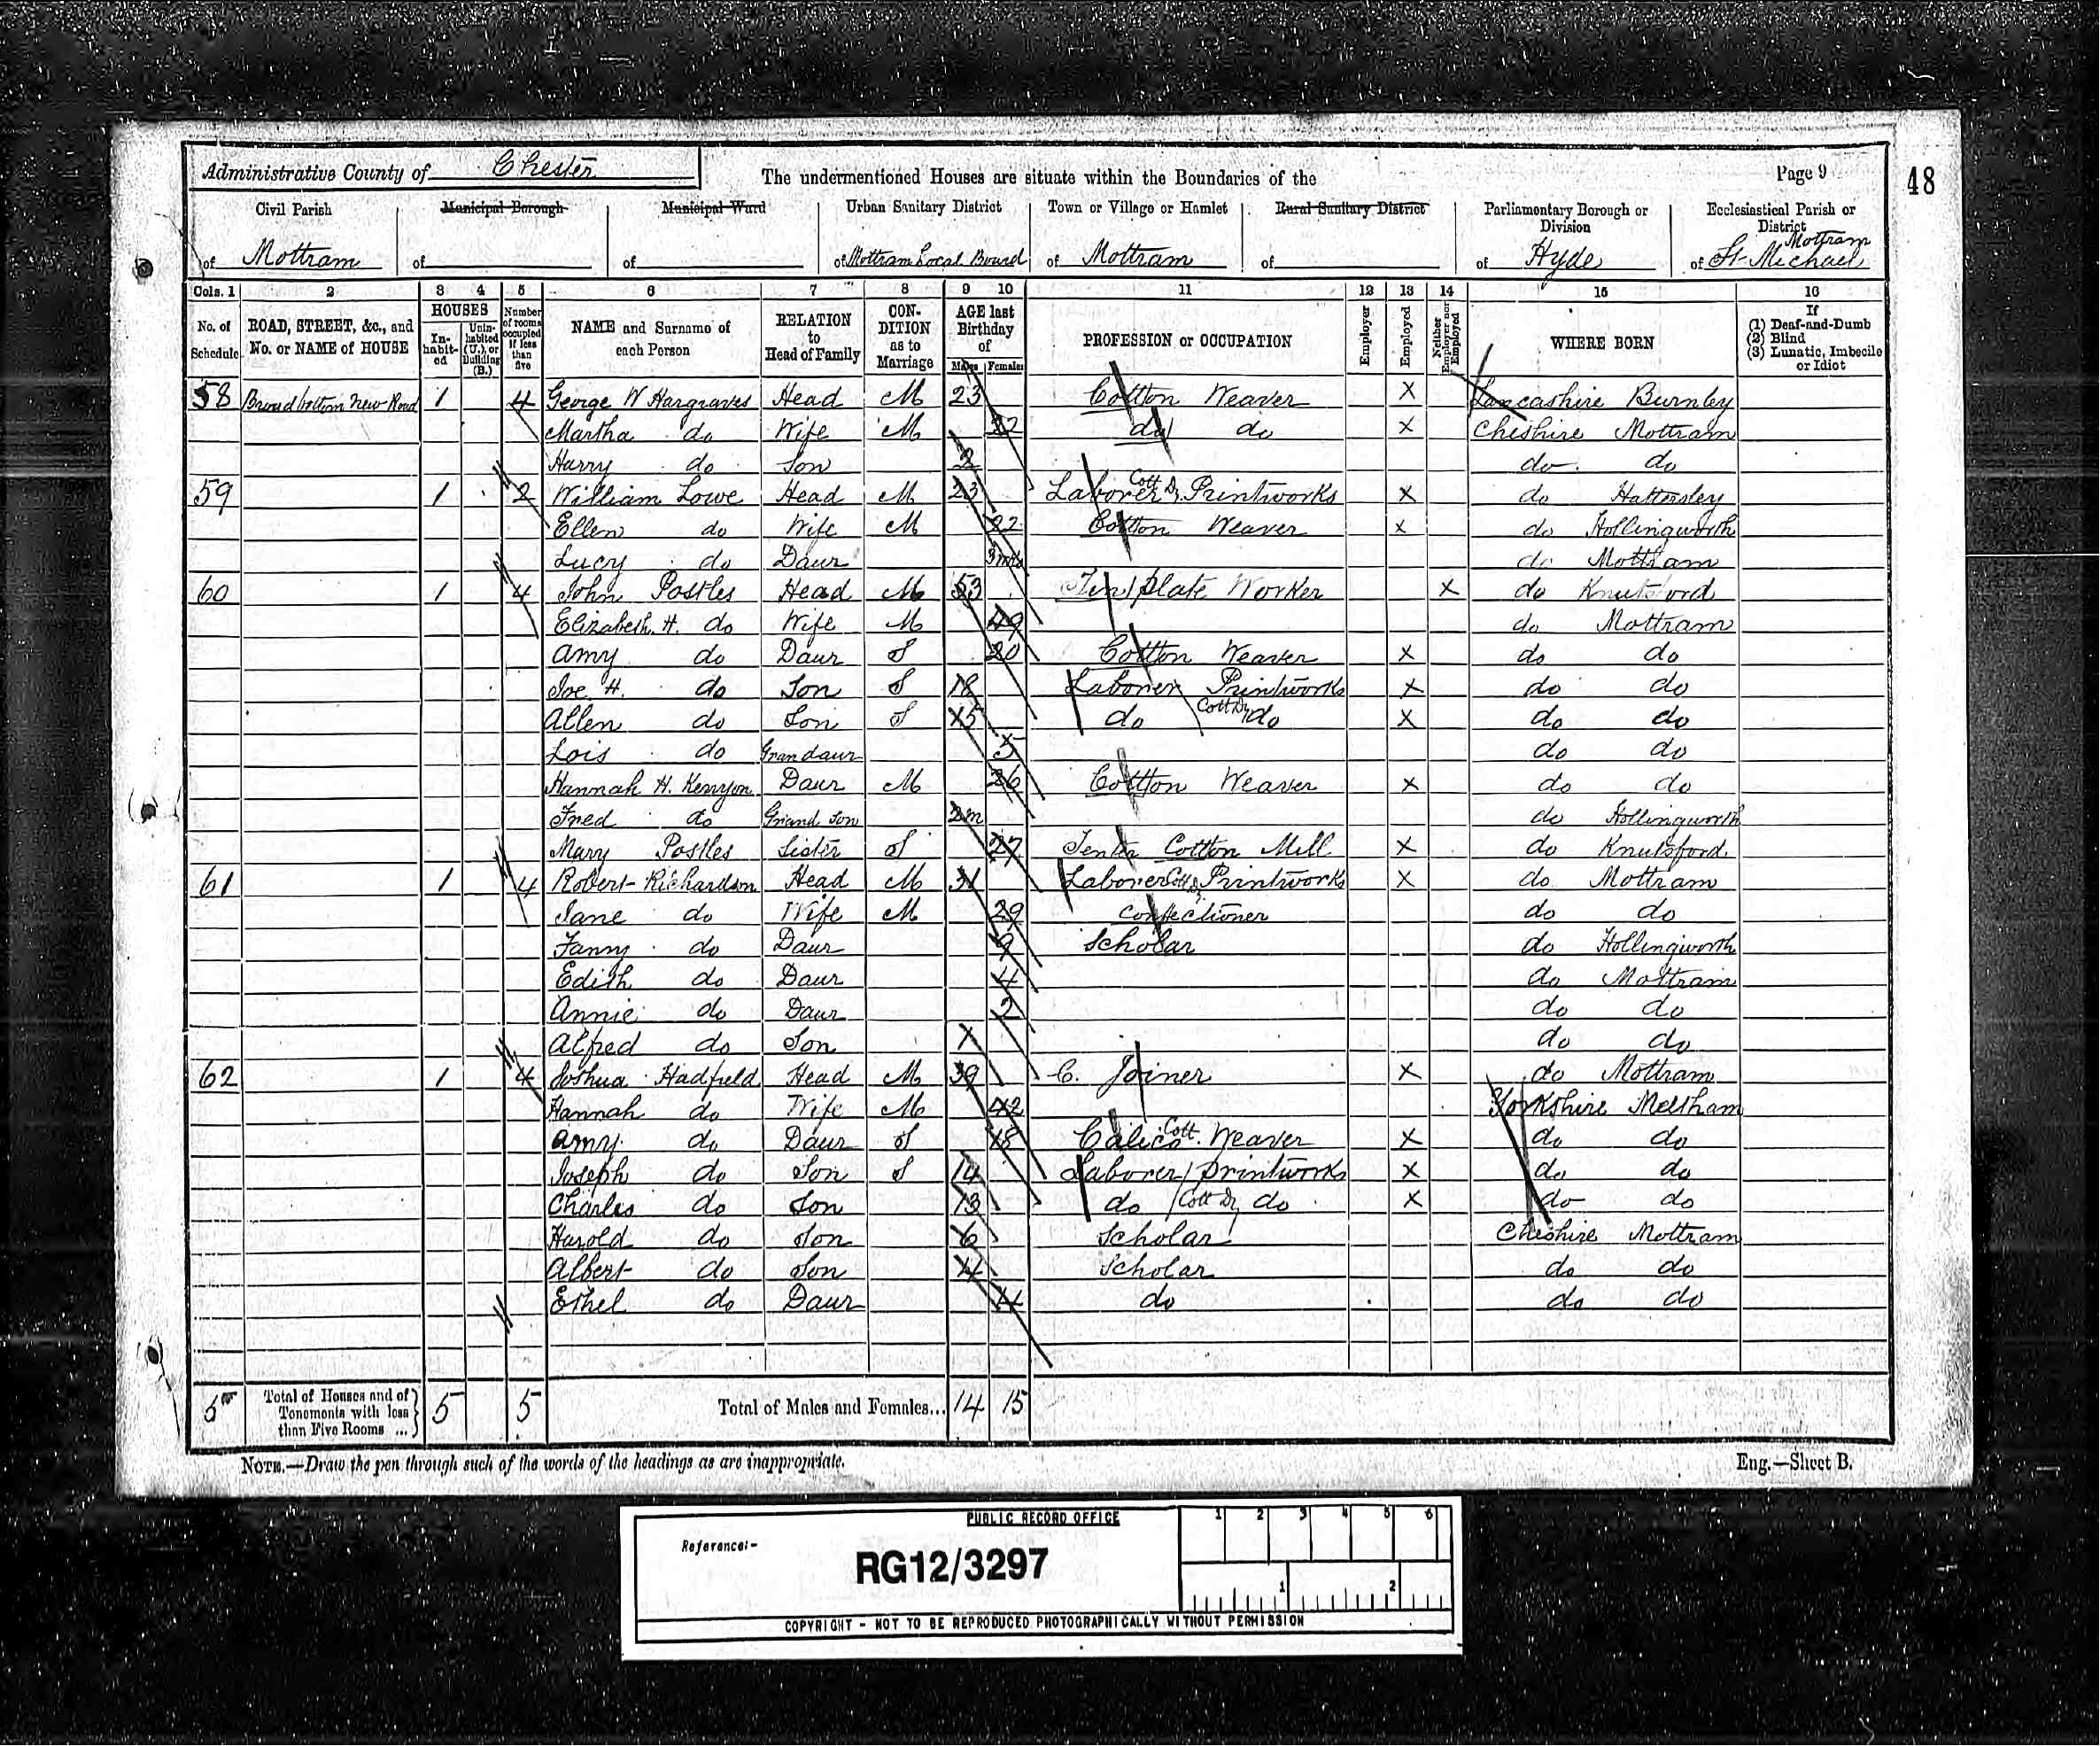 Administrative County of Chester
The undermentioned Houses are situate within the Boundaries of the
Page 9
48
Civil Parish Municipal Borough Municipal Ward Urban Sanitary District Town or Village or Hamlet Rural Sanitary District Parliamentary Borough or Division Ecclesiastical Parish or District
of Mottram of of of Mottram Local Board of Mottram of of Hyde of St. Michael Mottram
Cols. 1 2 3 4 5 6 7 8 9 10 11 12 13 14 15 16
No. of Schedule ROAD, STREET, &c., and No. or NAME of HOUSE HOUSES Inhabited Uninhabited (U.), or Building (B.) Number of rooms occupied if less than five NAME and Surname of each Person RELATION to Head of Family CONDITION as to Marriage AGE last Birthday of Males Females PROFESSION or OCCUPATION Employer Employed Neither Employer nor Employed WHERE BORN If (1) Deaf-and-Dumb (2) Blind (3) Lunatic, Imbecile or Idiot
58 Broadbottom New Road 1 4 George W Hargraves Head M 23 Cotton Weaver X Lancashire Burnley
Martha do Wife M 22 do do X Cheshire Mottram
Harry do Son 2 do do
59 1 2 William Lowe Head M 23 Laborer Cott D, Printworks X do Hattersley
Ellen do Wife M 22 Cotton Weaver X do Hollingworth
Lucy do Daur 3 mths do Mottram
60 1 4 John Postles Head M 53 Tin plate Worker X do Knutsford
Elizabeth. H. do Wife M 49 do Mottram
Amy do Daur S 20 Cotton Weaver X do do
Joe H. do Son S 18 Laborer Printworks X do do
Allen do Son S 15 do Cott D, do X do do
Lois do Grandaur 5 do do
Hannah H. Kenyon Daur M 26 Cotton Weaver X do do
Fred do Grand Son 2m do Hollingworth
Mary Postles Sister S 27 Tenter Cotton Mill X do Knutsford.
61 1 4 Robert Richardson Head M 31 Laborer Cott D, Printworks X do Mottram
Jane do Wife M 29 Confectioner do do
Fanny do Daur 9 Scholar do Hollingworth
Edith do Daur 4 do Mottram
Annie do Daur 2 do do
Alfred do Son 1 do do
62 1 4 Joshua Hadfield Head M 39 C. Joiner X do Mottram
Hannah do Wife M 42 Yorkshire Meltham
Amy do Daur S 18 Calico Cott. Weaver X do do
Joseph do Son S 14 Laborer printworks X do do
Charles do Son 13 do Cott D, do X do do
Harold do Son 6 Scholar Cheshire Mottram
Albert do Son 4 Scholar do do
Ethel do Daur 4 do do do
5 Total of Houses and of Tenements with less than Five Rooms ... 5 5 Total of Males and Females... 14 15
NOTE.—Draw the pen through such of the words of the headings as are inappropriate.
Eng.—Sheet B.
PUBLIC RECORD OFFICE
1 2 3 4 5 6
Reference:-
RG12/3297
1 2
COPYRIGHT - NOT TO BE REPRODUCED PHOTOGRAPHICALLY WITHOUT PERMISSION